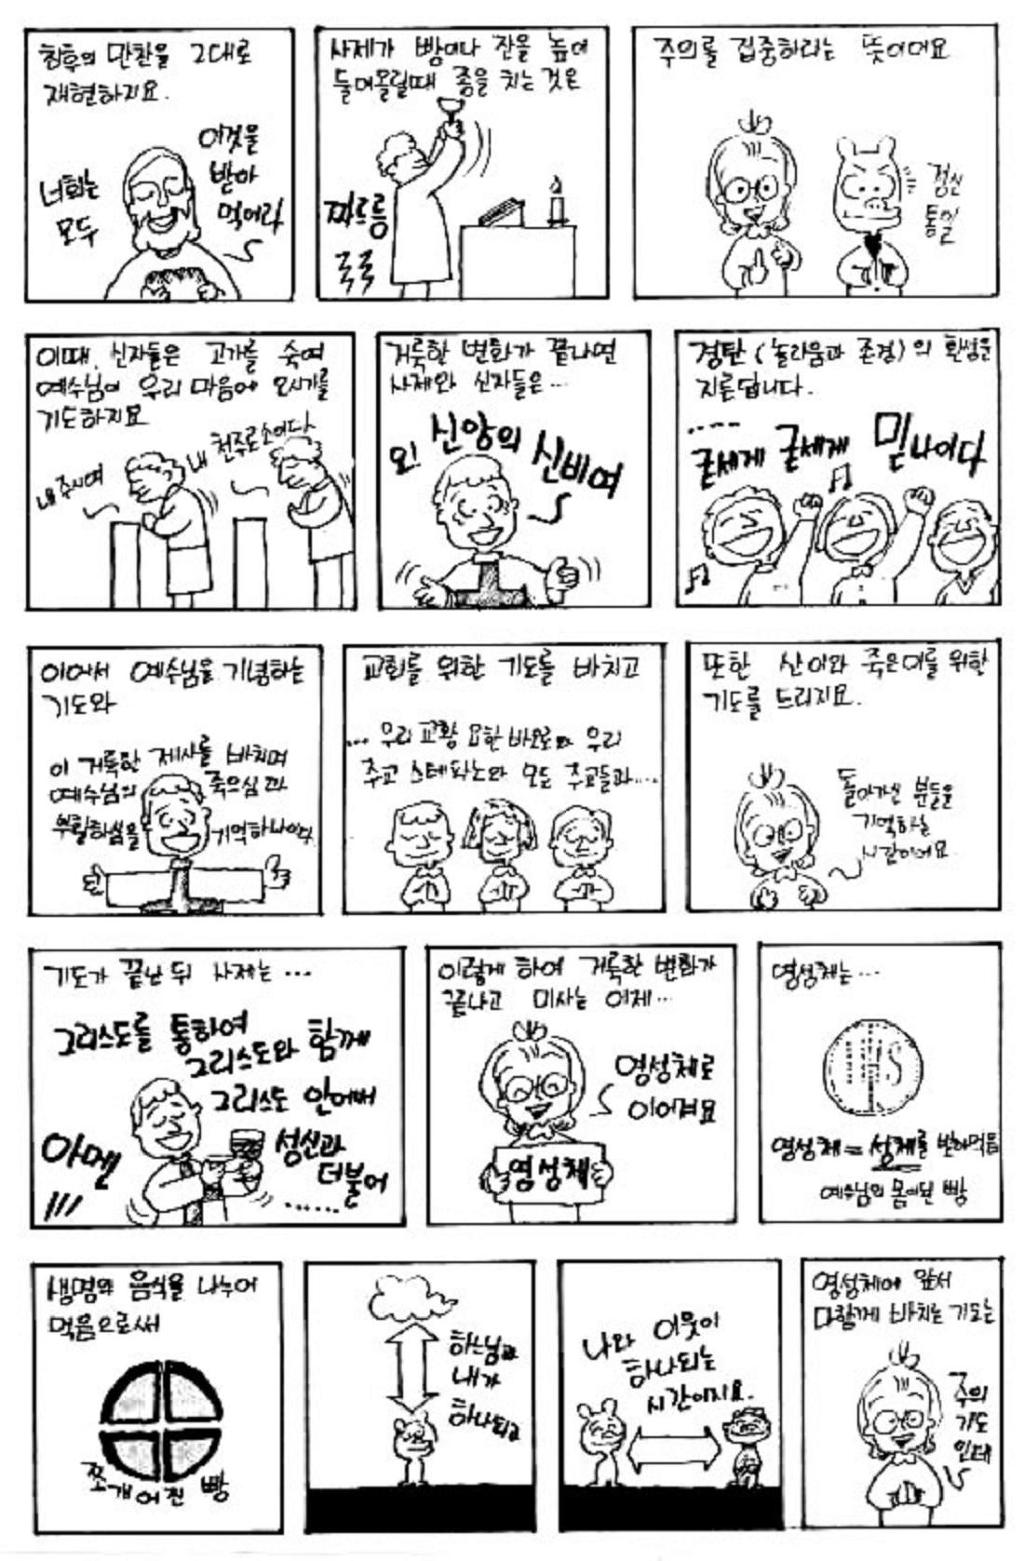 최후의 만찬을 그대로
재현하지요.
너희는
모두
이것을
받아
먹어라
사제가 빵이나 잔을 높이
들어올릴때 종을 치는 것은
짜르릉
주의를 집중하라는 뜻이어요
정신
통일
이때, 신자들은 고개를 숙여
예수님이 우리 마음에 오시기를
기도하지요
내 주시며
내 천주로소이다
거룩한 변화가 끝나면
사제와 신자들은...
오! 신앙의 신비여
경탄 (놀라움과 존경)의 환성을
지른답니다.
.....
굳세게 굳세게 믿나이다
이어서 예수님을 기념하는
기도와
이 거룩한 제사를 바치며
예수님의 죽으심과
부활하심을 기억하나이다
교회를 위한 기도를 바치고
... 우리 교황 요한 바오로와 우리
주교 스테파노와 모든 주교들과....
또한 산 이와 죽은 이를 위한
기도를 드리지요.
돌아가신 분들을
기억하는
시간이어요.
기도가 끝난 뒤 사제는 ...
그리스도를 통하여
그리스도와 함께
그리스도 안에서
성신과
더불어
......
아멘
!!!
이렇게 하여 거룩한 변화가
끝나고 미사는 이제...
영성체로
이어져요
영성체
영성체는...
IHS
영성체 = 성체를 받아먹음
예수님의 몸이된 빵
생명의 음식을 나누어
먹음으로써
쪼개어진 빵
하느님과
내가
하나되고
나와 이웃이
하나되는
시간이지요.
영성체에 앞서
다함께 바치는 기도는
주의
기도
인데